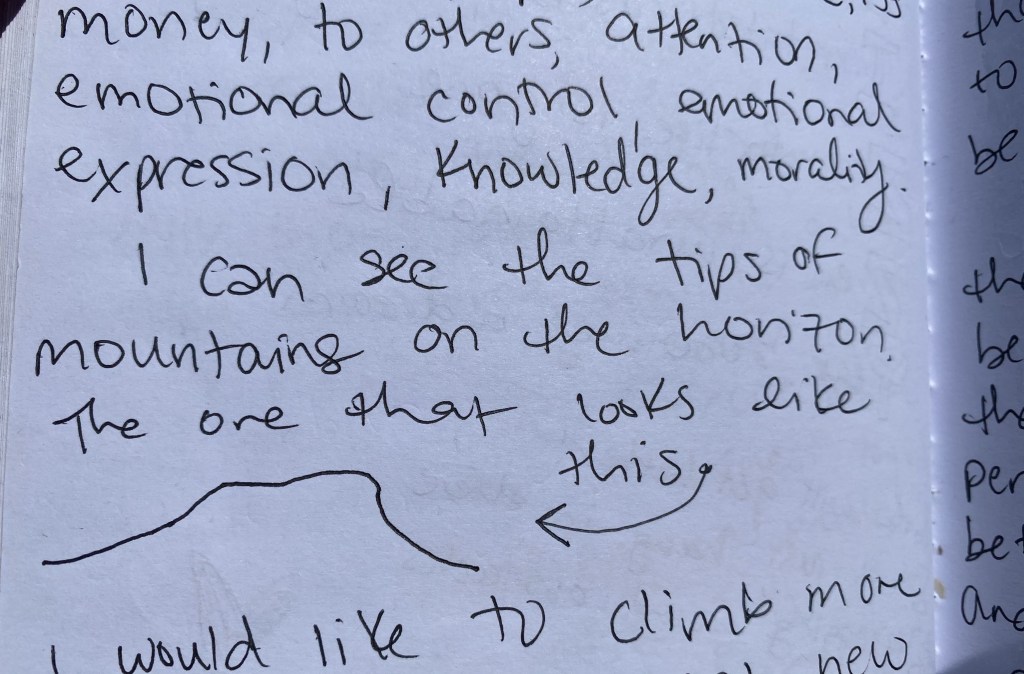 money, to others, attention,
emotional control, emotional
expression, knowledge, morality.
I can see the tips of
mountains on the horizon.
The one that looks like
this
I would like to climb more
new
the
to
be
the
be
the
per
bet
and